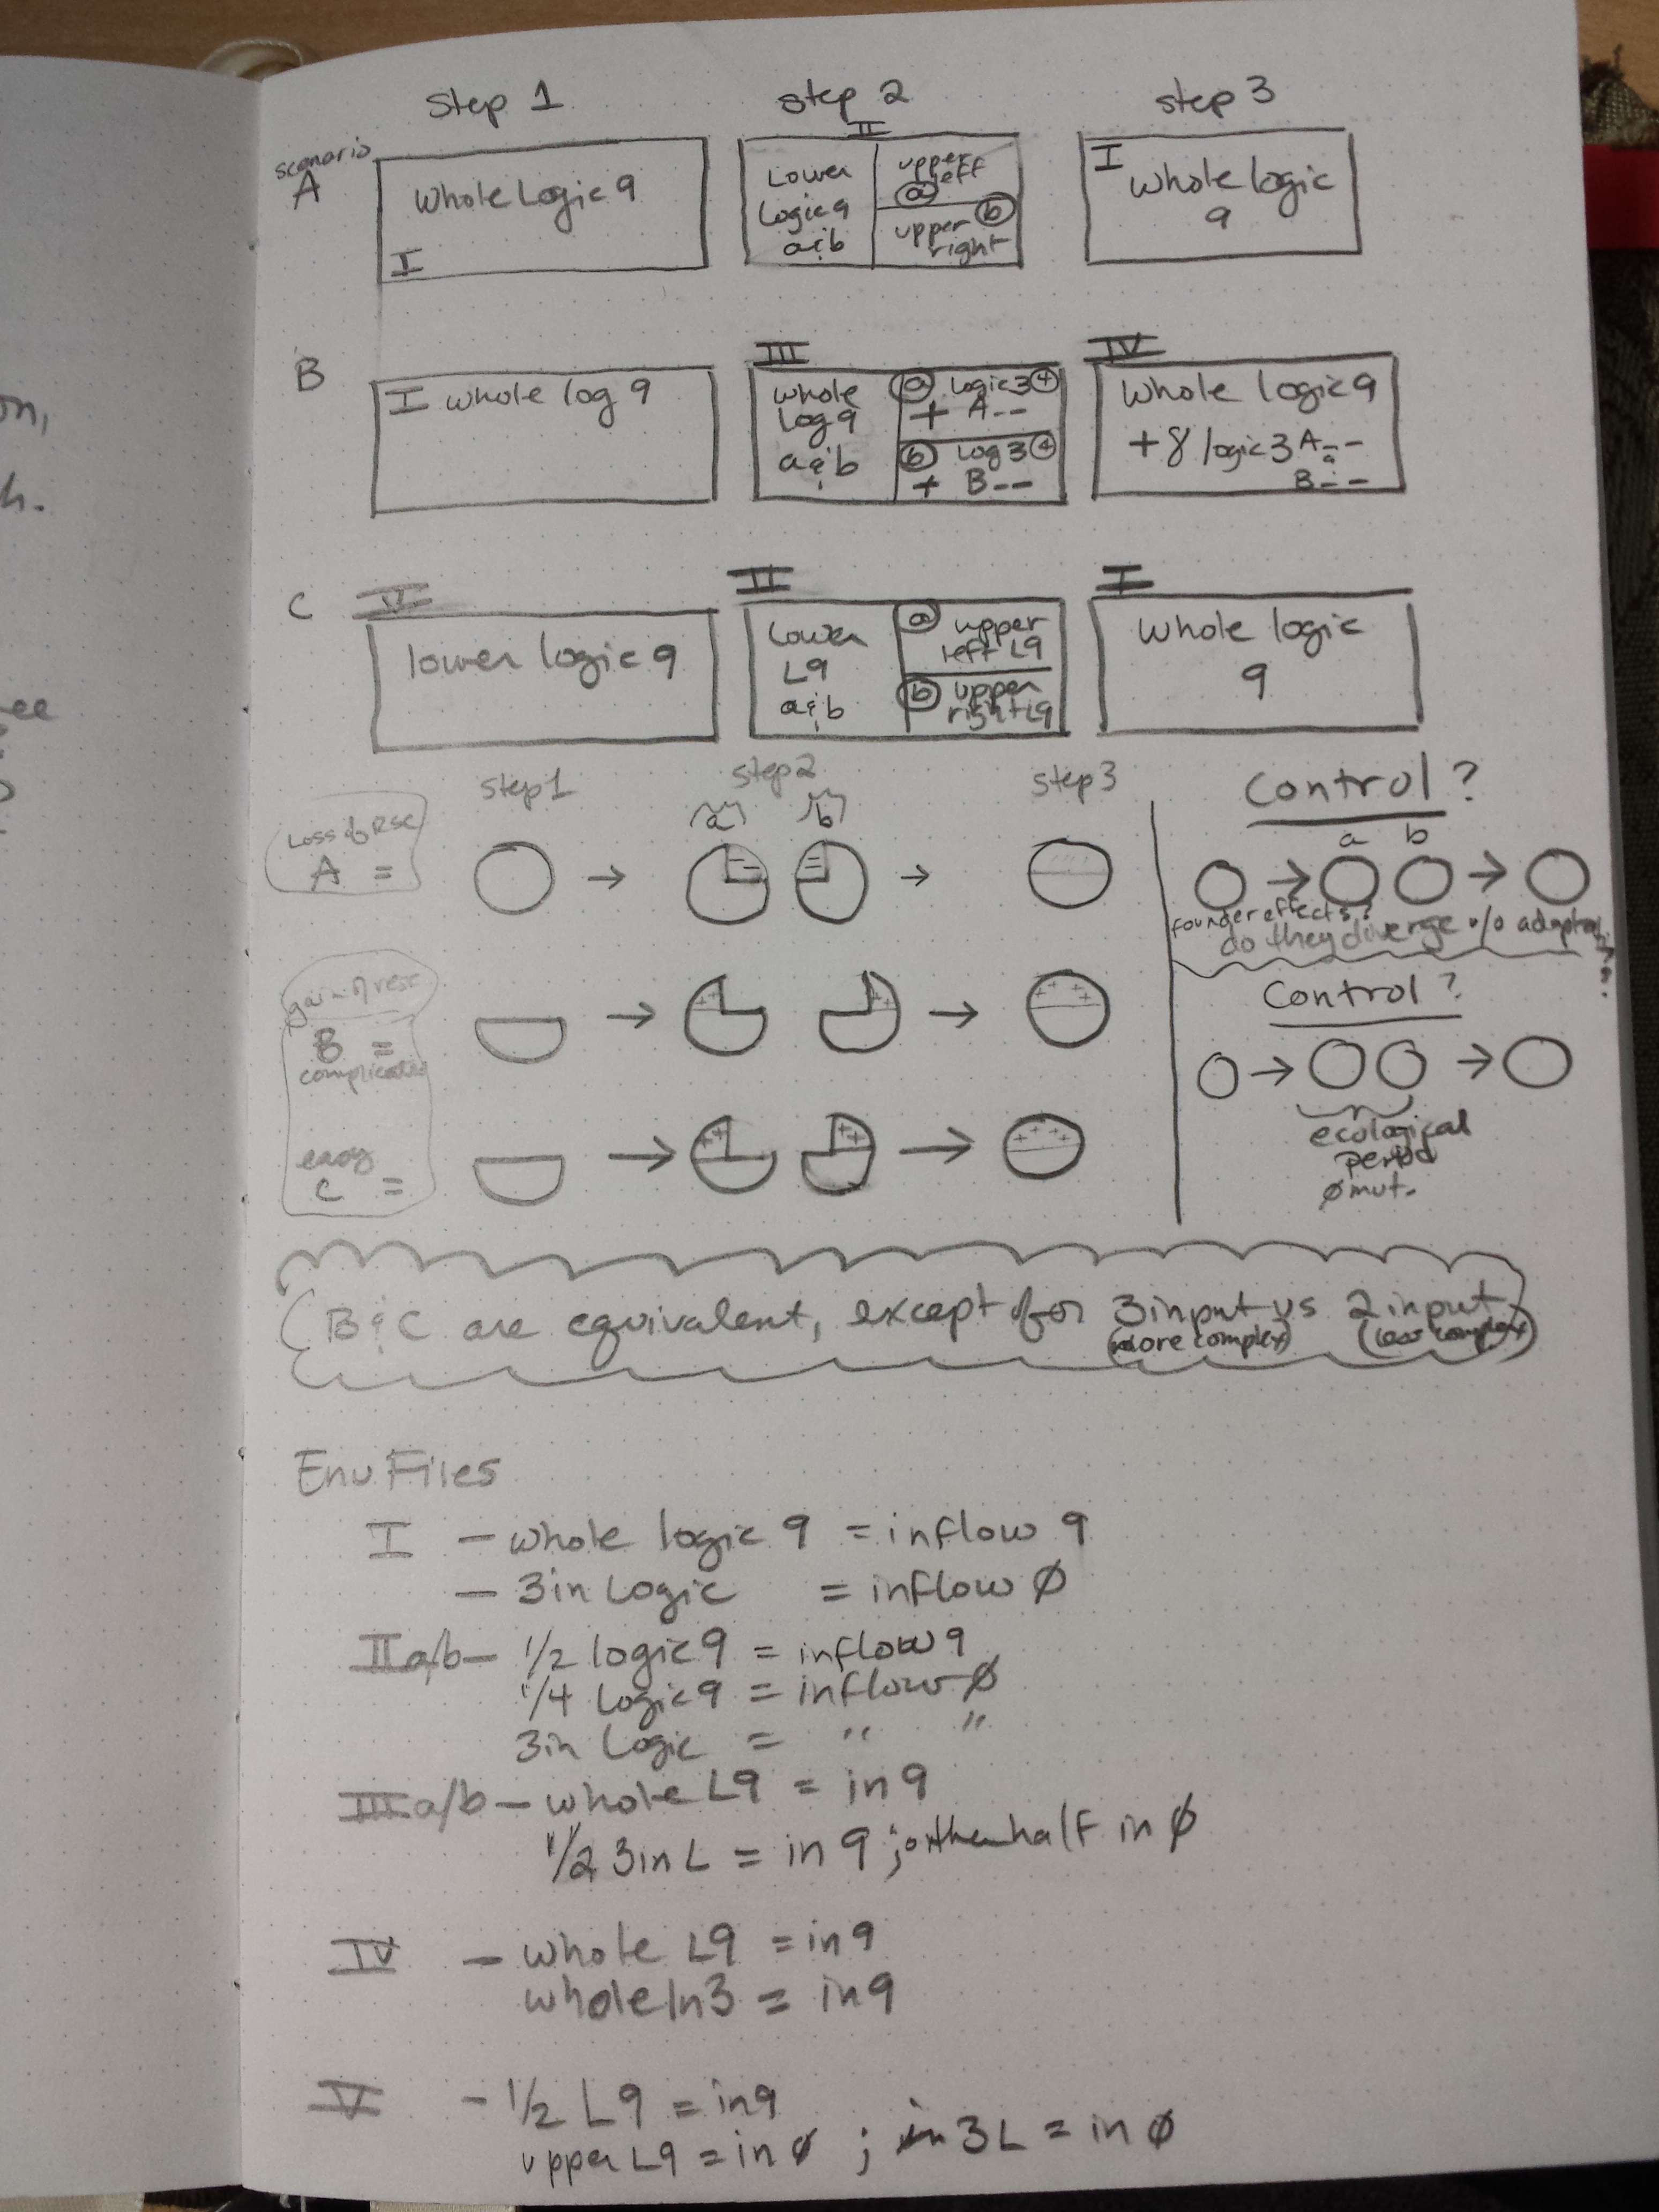 on,
h.
ee
step 1 step 2 step 3
scenario
A
Whole Logic 9
I
II
Lower
Logic 9
a & b
upper
left
a
upper b
right
I
whole logic
9
B
I whole log 9
III
whole
log 9
a & b
a logic 3 +
+ A--
b log 3 +
+ B--
IV
Whole logic 9
+8 logic 3 A--
&
B--
C
V
lower logic 9
II
Lower
L9
a & b
a upper
left L9
b upper
right L9
I
whole logic
9
step 1 step 2 step 3
a b
Loss of Rsc
A =
gain of resc
B =
complicated
easy
C =
Control?
a b
founder effects?
do they diverge w/o
Control?
ecological
period
ø mut.
B & C are equivalent, except for 3 input vs 2 input
(more complex) (less complex)
Env Files
I - whole logic 9 = inflow 9
- 3in Logic = inflow Ø
II a/b - 1/2 logic 9 = inflow 9
1/4 Logic 9 = inflow Ø
3in Logic = " "
III a/b - whole L9 = in 9
1/2 3in L = in 9 ; other half in Ø
IV - whole L9 = in 9
whole In3 = in 9
V - 1/2 L9 = in 9
upper L9 = in Ø ; in 3L = in Ø